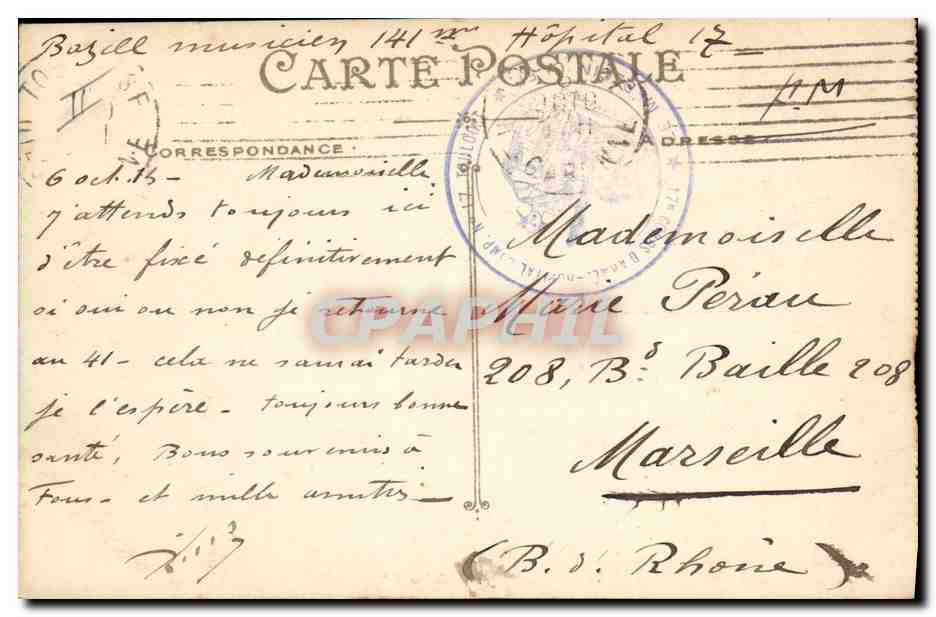 Bazill musicien 141me Hôpital 17
CARTE POSTALE
FM
CORRESPONDANCE
ADRESSE
6 oct. 15 - Mademoiselle
J'attends toujours ici
d'être fixé définitivement
si oui ou non je retourne
au 41 - cela ne saurai tarder
je l'espère - toujours bonne
santé, Bons souvenirs à
Tous - et mille amitiés
Mademoiselle
Marie Pérau
208, Bd. Baille 208
Marseille
(B. d. Rhône)
17e CORPS D'ARMÉE
HÔPITAL COMP. No 17 TOULOUSE
CPAPHIL